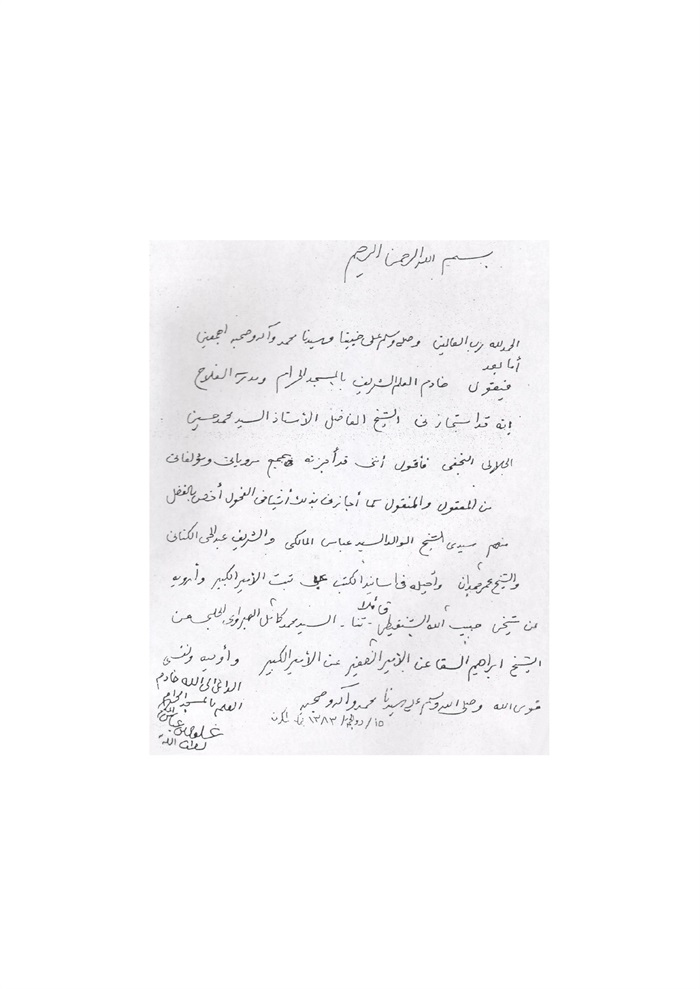 بسم الله الرحمن الرحيم
الحمد لله رب العالمين وصلى وسلم على حبيبنا وسيدنا محمد وآله وصحبه اجمعين
أما بعد
فيقول خادم العلم الشريف بالمسجد الحرام ومدرسة الفلاح
إنه قد استجازني الشيخ الفاضل الأستاذ السيد محمد حسين
الجلالي النجفي فأقول أنني قد أجزته بجميع مروياتي ومؤلفاتي
من المعقول والمنقول كما أجازني بذلك أشياخي الفحول أخص بالفضل
منهم سيدي الشيخ الوالد السيد عباس المالكي والشريف عبد الحي الكتاني
والشيخ عمر حمدان وأحيله في أسانيد الكتب على ثبت الأمير الكبير وأرويه
قائلا
عن شيخي حبيب الله الشنقيطي - ثنا - السيد محمد كامل الهبراوي الحلبي عن
الشيخ ابراهيم السقا عن الأمير الصغير عن الأمير الكبير وأوصيه ونفسي
بتقوى الله وصلى الله وسلم على سيدنا محمد وآله وصحبه
١٥/ ذو الحجة/ ١٣٨٣
الداعي الى الله خادم
العلم بالمسجد الحرام
علوي عباس